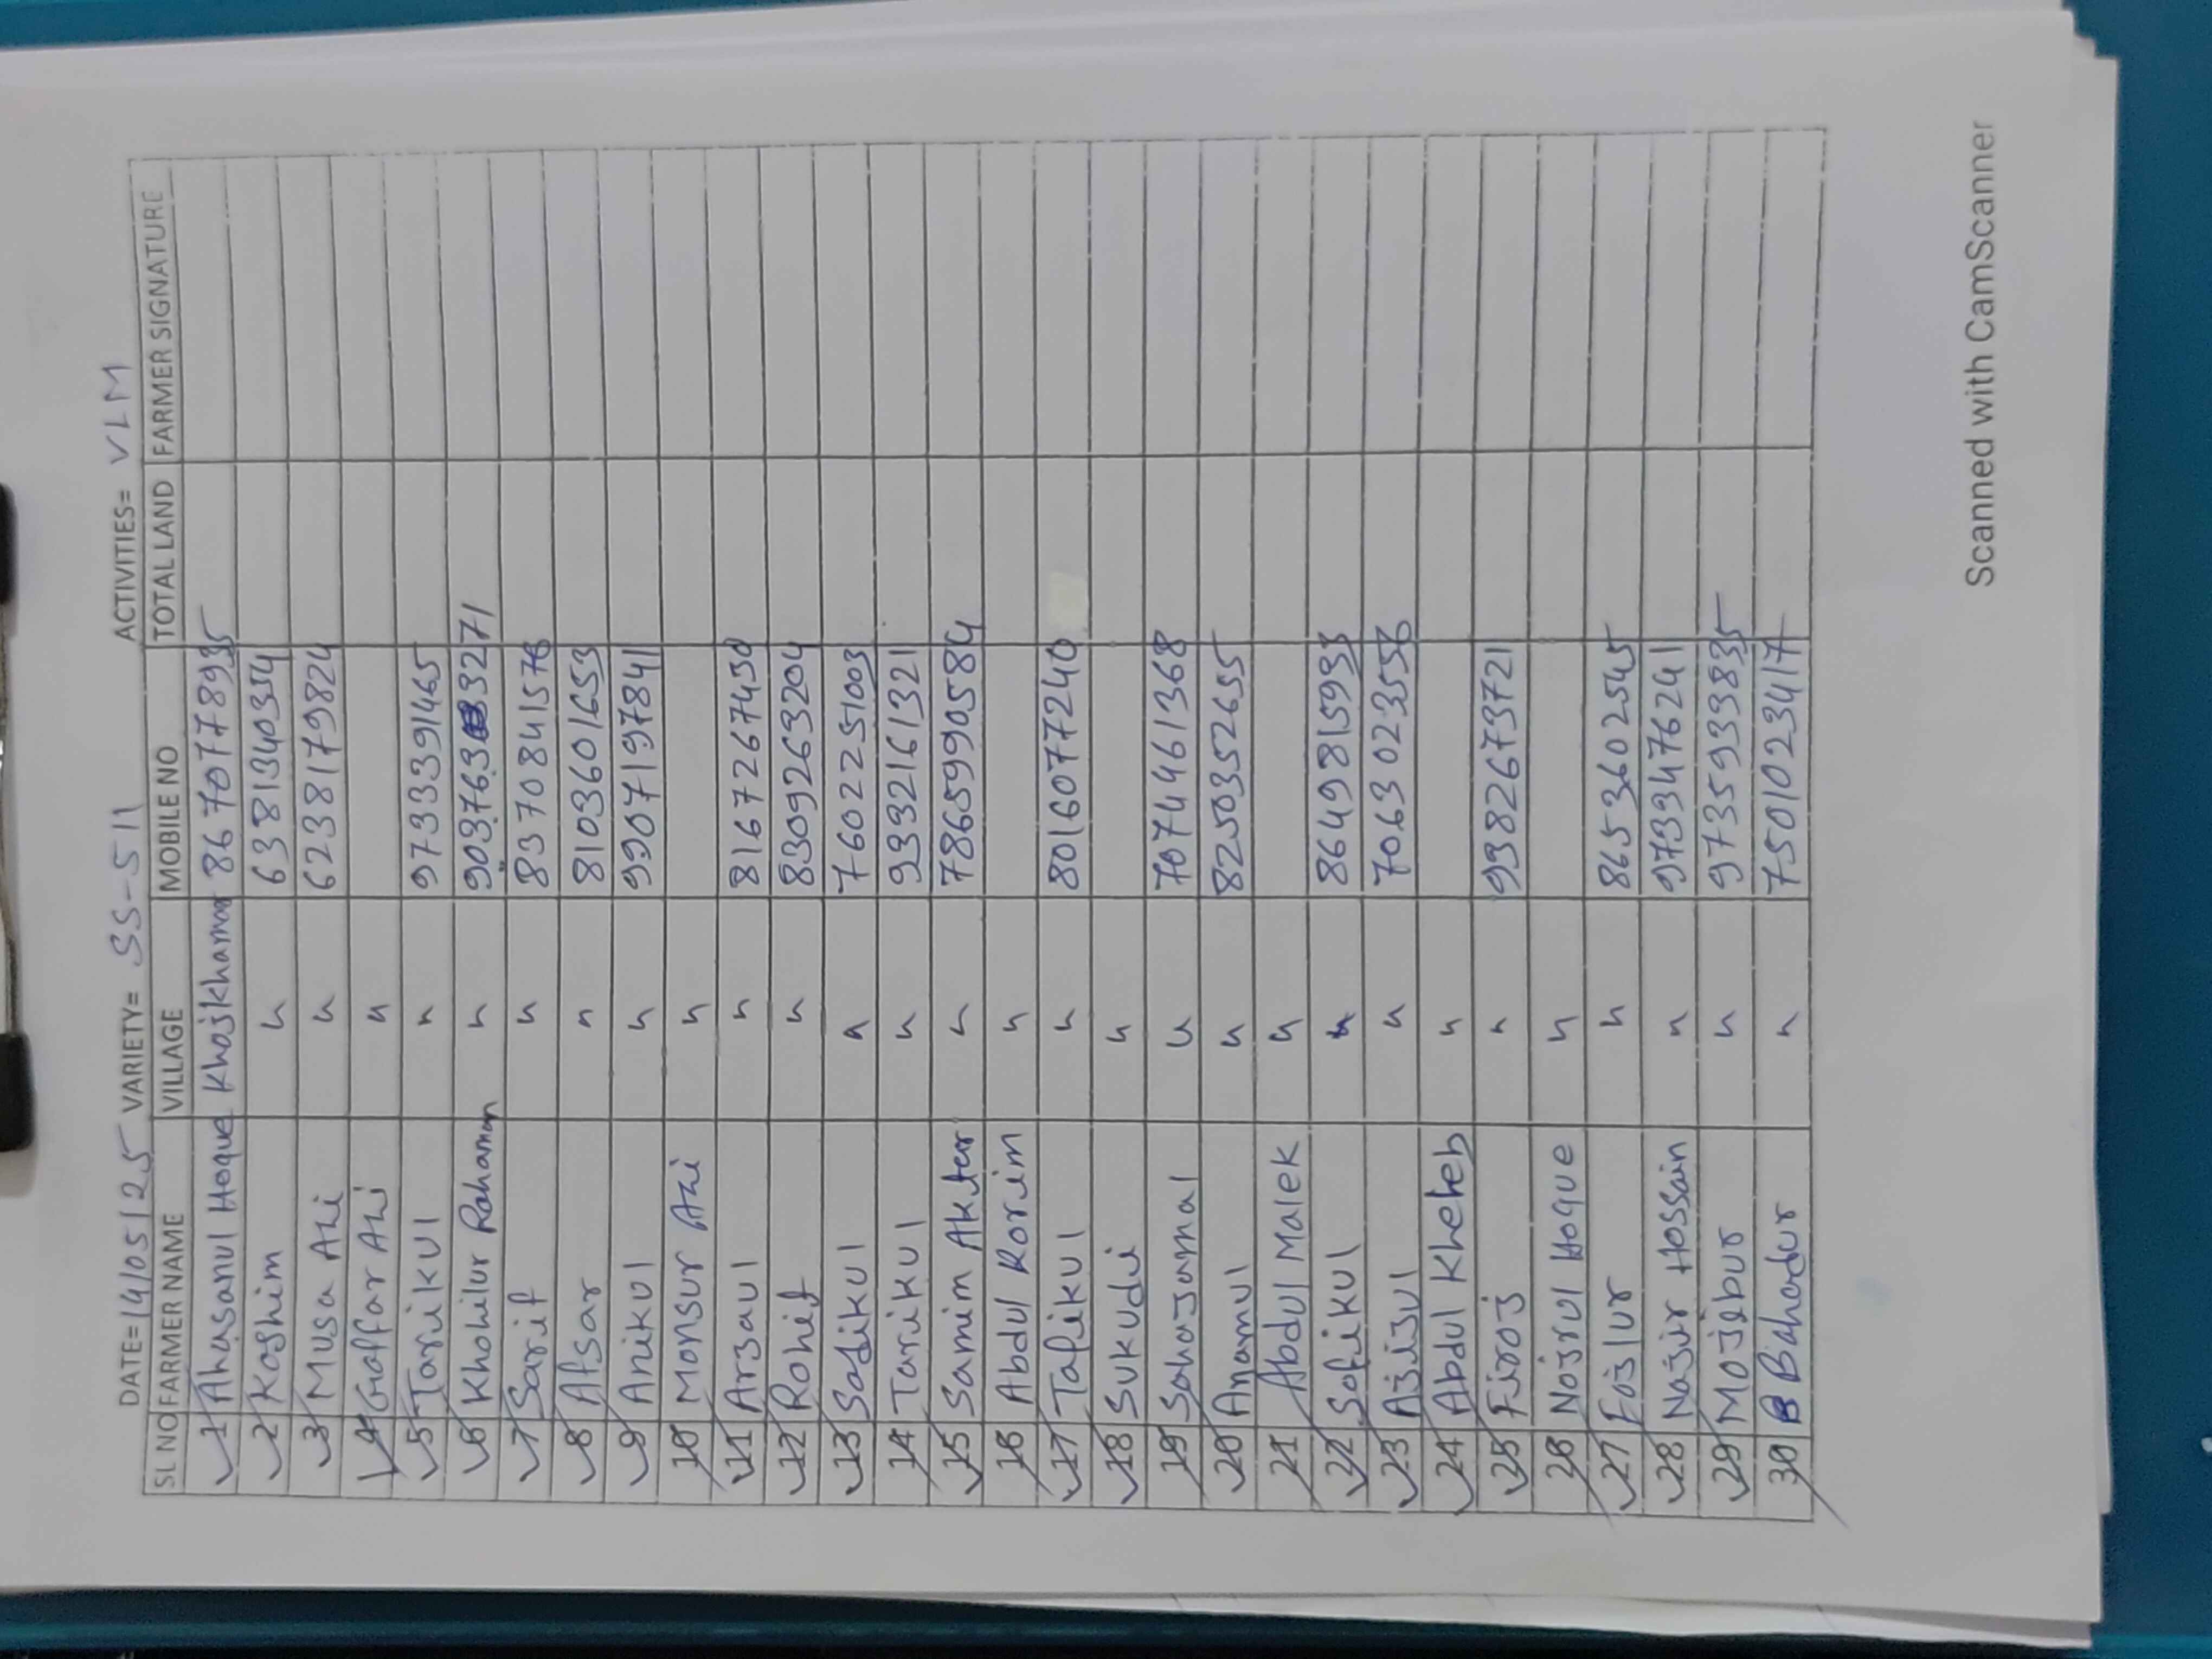 DATE= 14/05/25 VARIETY= SS-511 ACTIVITIES= VLM
SL NO FARMER NAME VILLAGE MOBILE NO TOTAL LAND FARMER SIGNATURE
1 Ahasanul Hoque Khojkhamar 8670778935
2 Koshim " 6381340354
3 Musa Ali " 6238179824
4 Gaffar Ali "
5 Tarikul " 9733391465
6 Kholilur Rahaman "
7 Sarif " 8370841576
8 Afsar " 8103601653
9 Anikul " 9907197841
10 Monsur Ali "
11 Arsaul " 8167267430
12 Rohif " 8309263204
13 Sadikul " 7602251003
14 Tarikul " 9332161321
15 Samim Akter " 7865990584
16 Abdul Korim "
17 Tafikul " 8016077240
18 Sukudi "
19 Sahajamal " 7074461368
20 Anamul " 8250352655
21 Abdul Malek "
22 Sofikul " 8649815993
23 Azizul " 7063023556
24 Abdul Kheleb "
25 Firoj " 9382673721
26 Nojrul Hoque "
27 Fojlur " 8653602545
28 Najir Hossain " 9733476241
29 Mojibur " 9735933835
30 Bahadur " 7501023417
Scanned with CamScanner